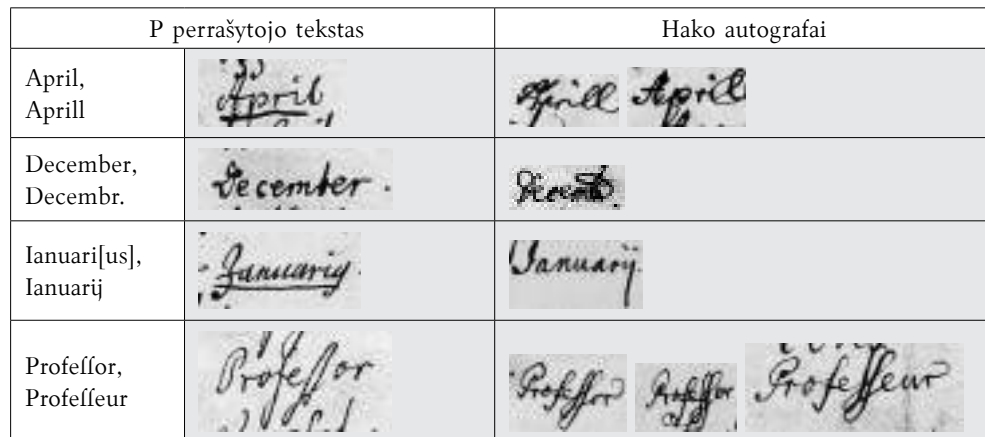 P perrašytojo tekstas Hako autografai
April,
Aprill
April Aprill April
December,
Decembr.
December. Decemb.
Ianuari[us],
Ianuarij
Januarius Januarij.
Profeſſor,
Profeſſeur
Profeſſor Profeſſor Profeſſor Profeſſeur